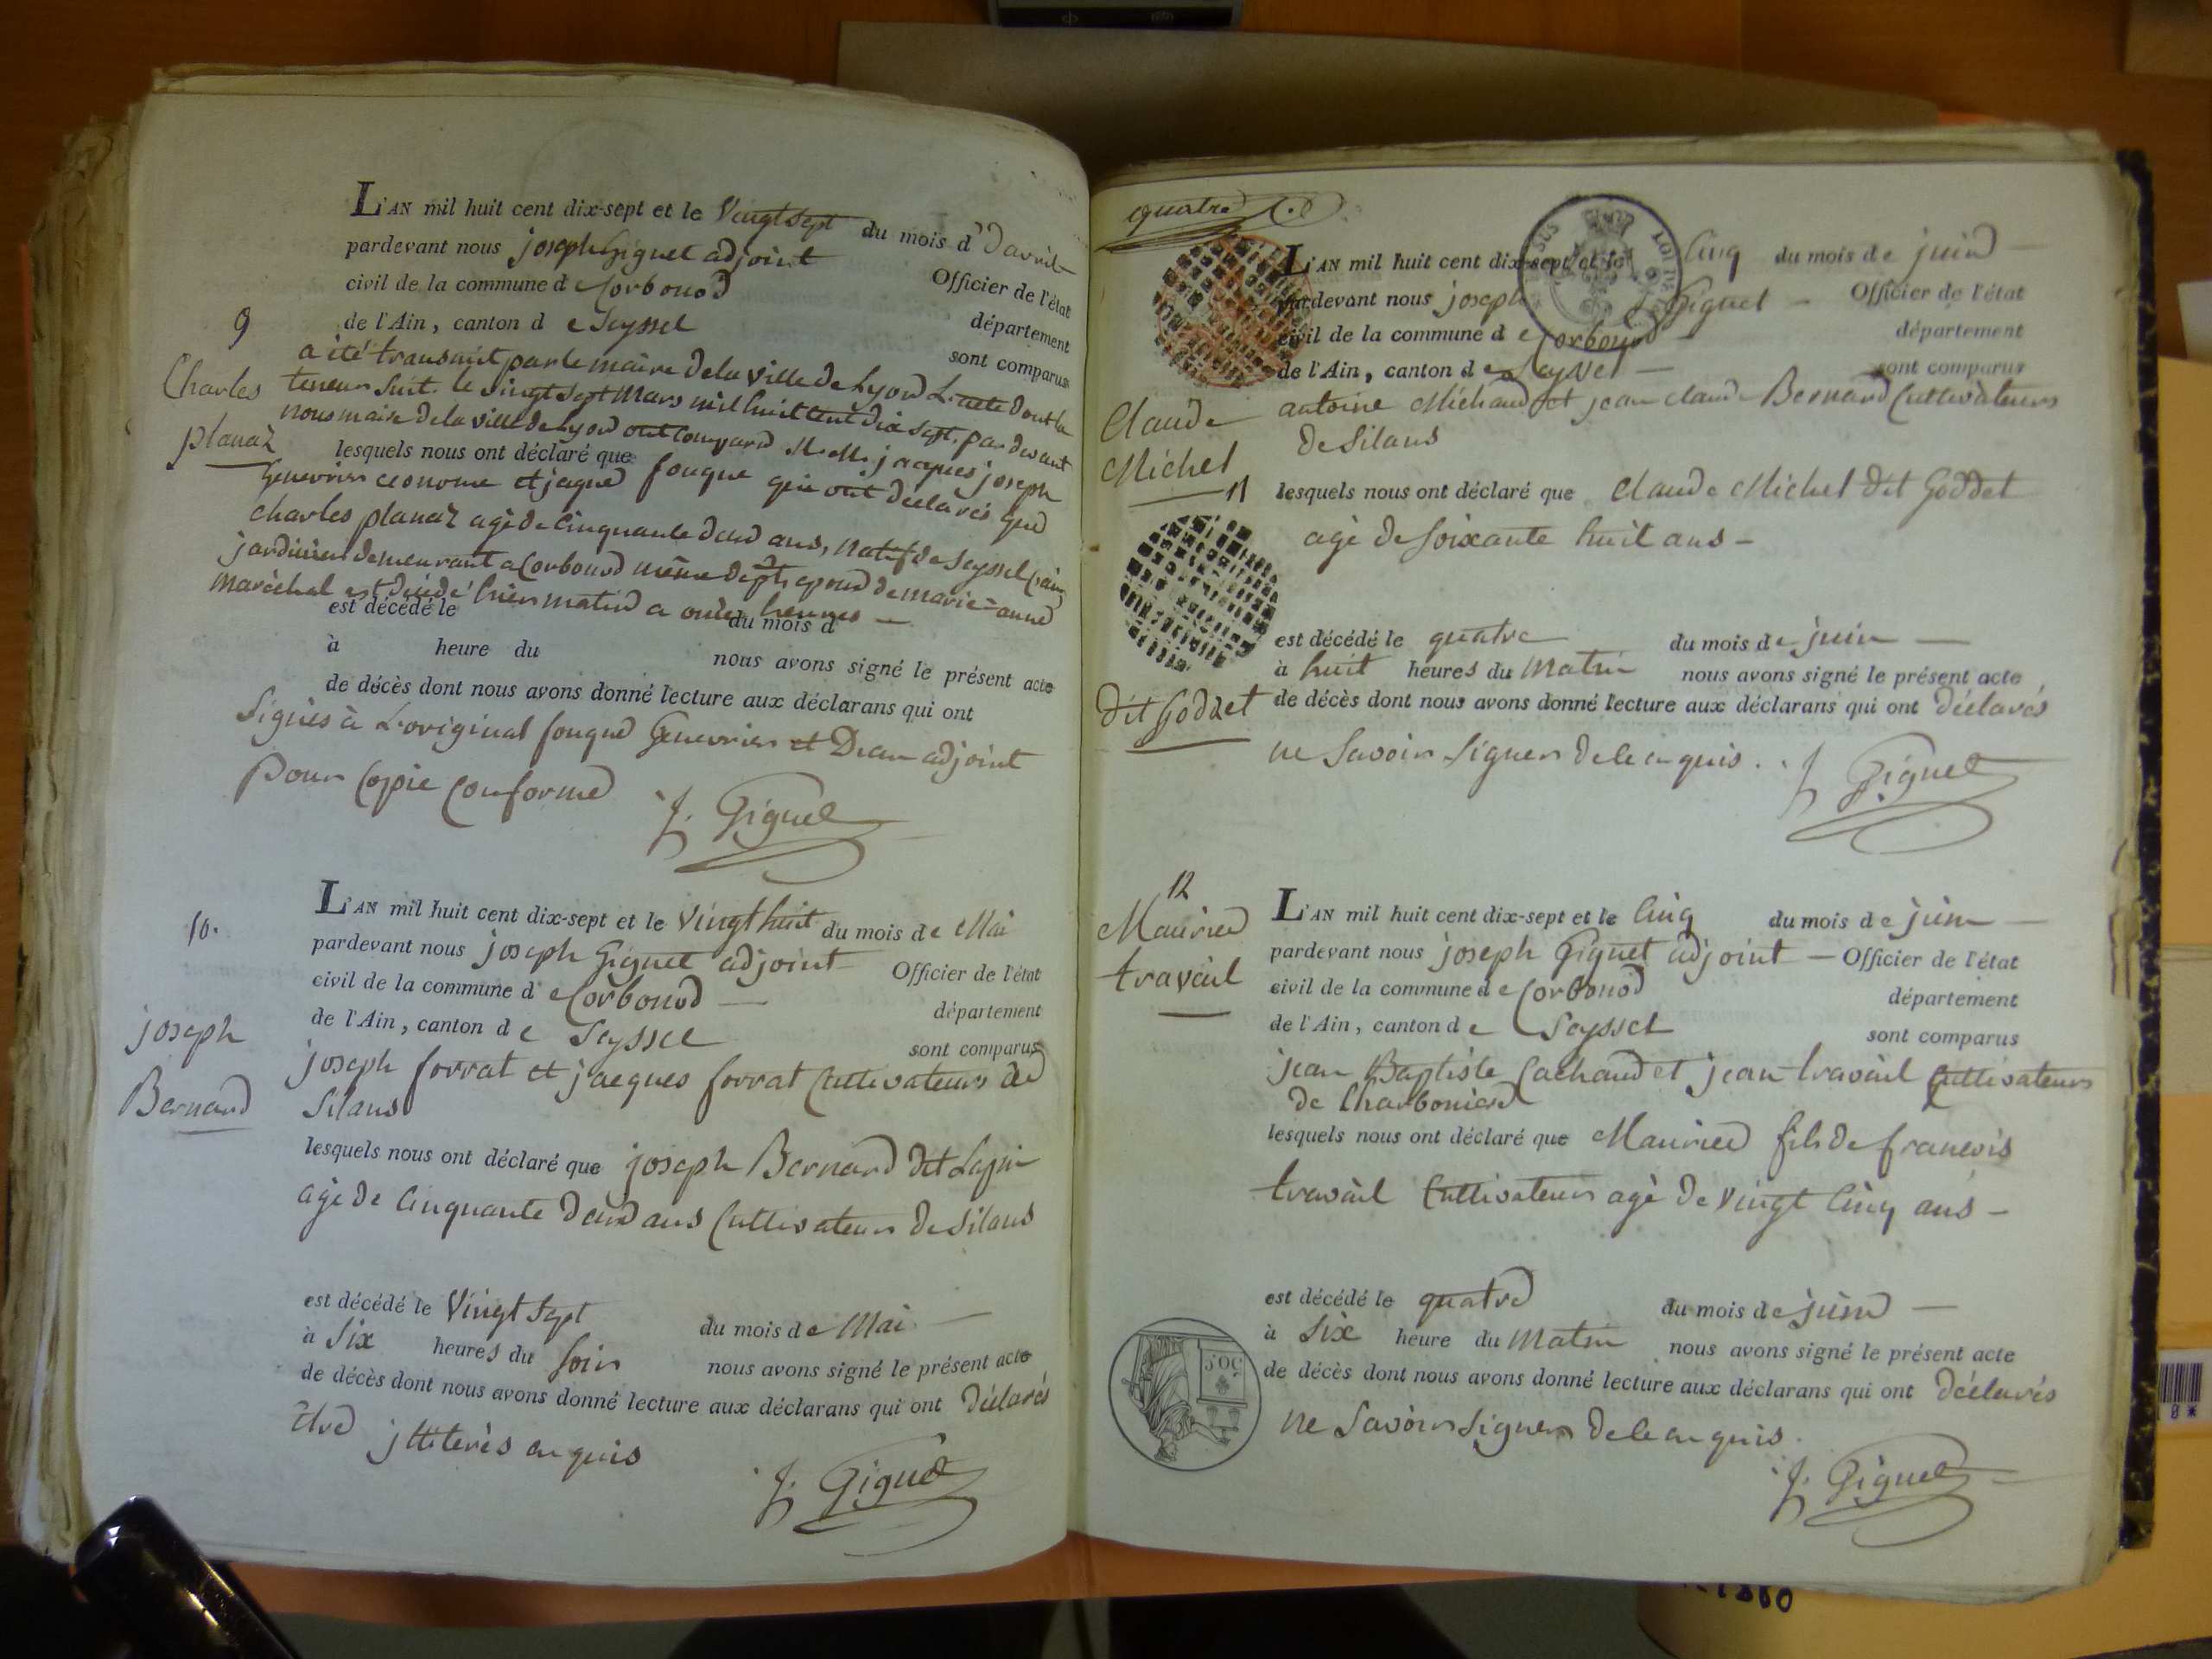 L'AN mil huit cent dix-sept et le Vingt sept du mois d'avril
pardevant nous joseph Giguet adjoint Officier de l'état
civil de la commune de Corbonod département
de l'Ain, canton de Seyssel sont comparus
9
Charles
planaz
a été transmit par le maire de la ville de Lyon L'acte dont la
teneur suit. le vingt sept Mars mil huit cent dix sept, par devant
nous maire de la ville de Lyon ont comparu M.M. jacques joseph
lesquels nous ont déclaré que
Genevrier econome et jaque fouque qui ont déclarés que
Charles planaz agé de Cinquante deux ans, natif de Seyssel (ain)
jardinier demeurant a Corbonod même dept. epoux de marie-anne
maréchal est décédé hier matin a onze heures —
est décédé le du mois d
à heure du nous avons signé le présent acte
de décès dont nous avons donné lecture aux déclarans qui ont
Signés à L'original fouque Genevrier et Dian adjoint
Pour Copie Conforme
J. Giguet
10.
joseph
Bernard
L'AN mil huit cent dix-sept et le Vingt huit du mois de Mai
pardevant nous joseph Giguet adjoint Officier de l'état
civil de la commune de Corbonod — département
de l'Ain, canton de Seyssel sont comparus
joseph forrat et jacques forrat Cultivateurs de
Silans
lesquels nous ont déclaré que joseph Bernard dit Lapin
agé de Cinquante deux ans Cultivateur de Silans
est décédé le Vingt Sept du mois de Mai —
à Six heures du Soir nous avons signé le présent acte
de décès dont nous avons donné lecture aux déclarans qui ont déclarés
être jlliterés enquis
J. Giguet
quatre
L'AN mil huit cent dix-sept et le Cinq du mois de juin —
pardevant nous joseph Giguet — Officier de l'état
civil de la commune de Corbonod — département
de l'Ain, canton de Seyssel — sont comparus
Claude
Michel
11
dit Goddet
antoine Michaud et jean claude Bernard Cultivateurs
de Silans
lesquels nous ont déclaré que Claude Michel dit Goddet
agé de Soixante huit ans —
est décédé le quatre du mois de juin —
à huit heures du Matin nous avons signé le présent acte
de décès dont nous avons donné lecture aux déclarans qui ont déclarés
ne Savoir Signer de ce enquis.
J. Giguet
12
Maurice
travail
L'AN mil huit cent dix-sept et le Cinq du mois de juin —
pardevant nous joseph Giguet adjoint — Officier de l'état
civil de la commune de Corbonod département
de l'Ain, canton de Seyssel sont comparus
jean Baptiste Cachaud et jean travail Cultivateurs
de Charboniere
lesquels nous ont déclaré que Maurice fils de francois
travail Cultivateur agé de Vingt Cinq ans —
est décédé le quatre du mois de juin —
à Six heure du Matin nous avons signé le présent acte
de décès dont nous avons donné lecture aux déclarans qui ont déclarés
ne Savoir Signer de ce enquis.
J. Giguet
50C